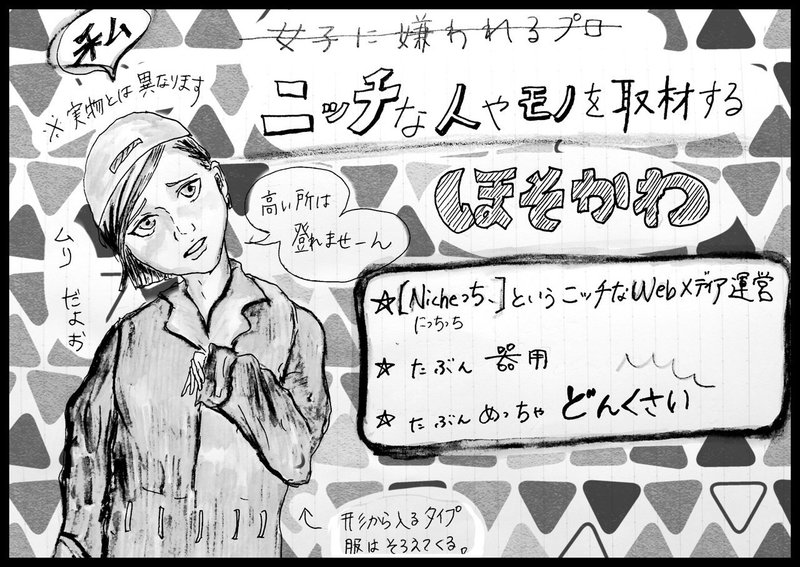 女子に嫌われるプロ
私
※実物とは異なります
ニッチな人やモノを取材する
ほそかわ
高い所は
登れませーん
ムリ だよぉ
☆[Nicheっち、]というニッチなWebメディア運営
にっちっち
☆たぶん 器用
☆たぶん めっちゃ どんくさい
← 形から入るタイプ
服はそろえてくる。